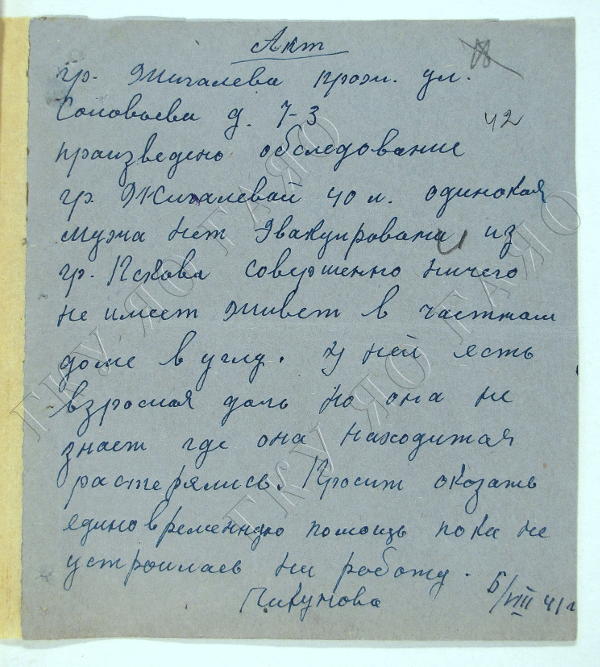 Акт
гр. Жигалева прож. ул.
Соловьева д. 7-3
42
произведено обследование
гр. Жигалевай 40 л. одинокая
мужа нет Эвакуирована из
гр. Пскова совершенно ничего
не имеет живет в частном
доме в углу. У ней есть
взрослая дочь но она не
знает где она находится
растерялись. Просит оказать
единовременную помощь пока не
устроилась на работу.
Пикунова 5/VIII 41 г
ГКУ ЯО ГАЯО
ГКУ ЯО ГАЯО